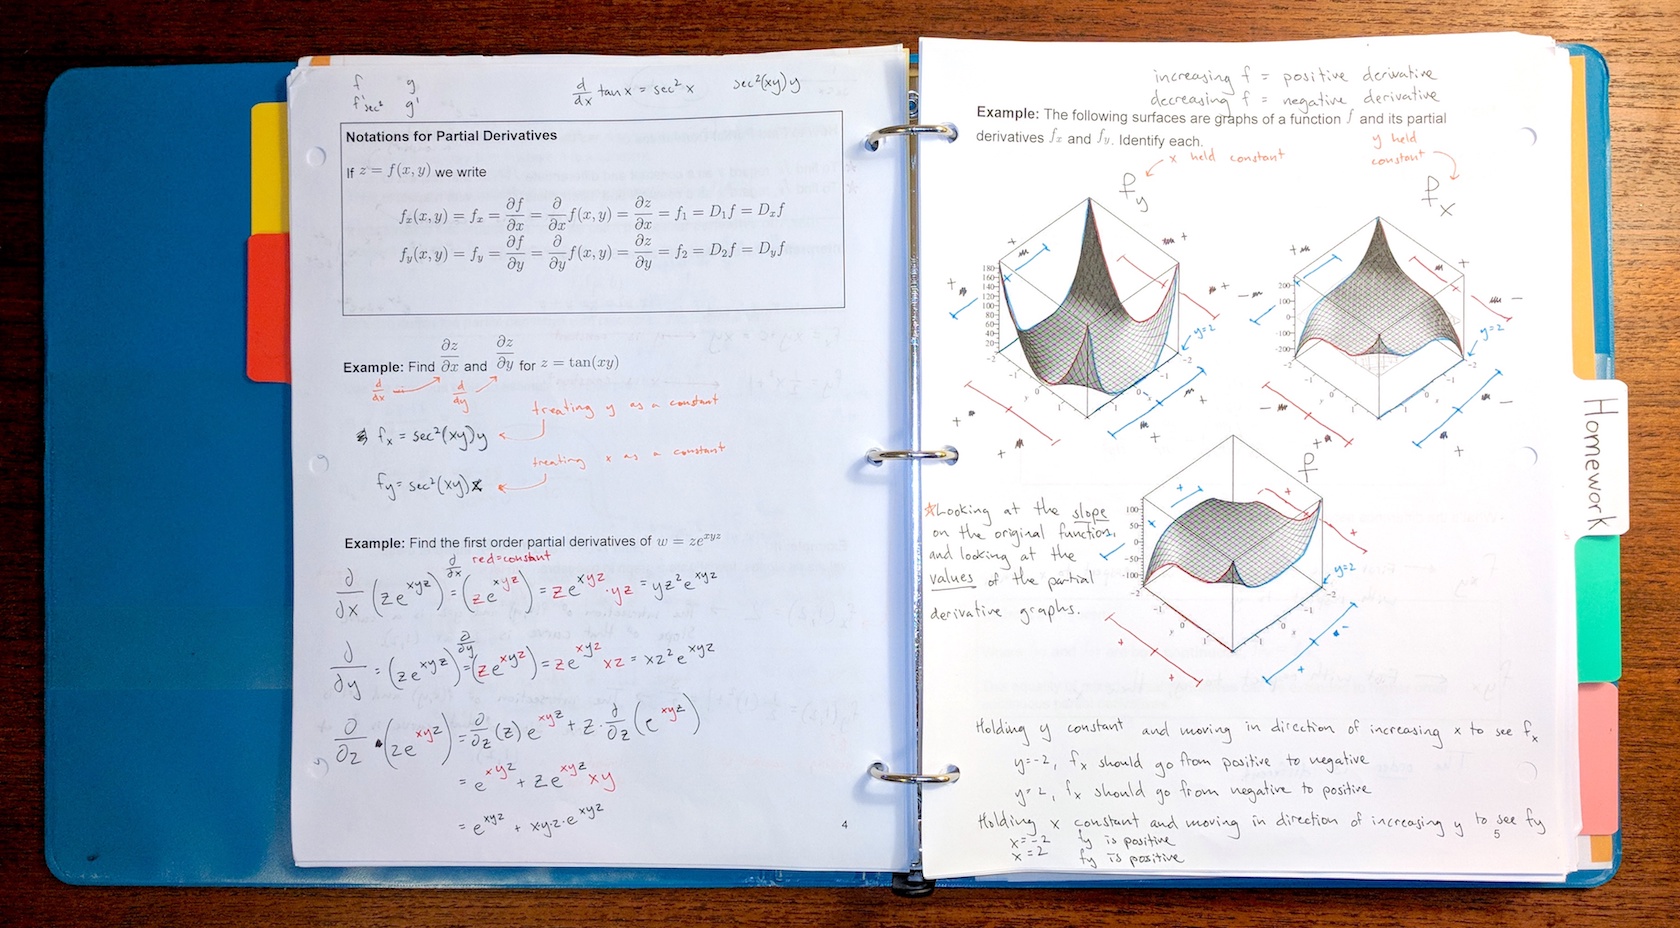 f g
f' sec² g'
d/dx tan x = sec² x sec²(xy) y
Notations for Partial Derivatives
If z = f(x, y) we write
fₓ(x, y) = fₓ = ∂f/∂x = ∂/∂x f(x, y) = ∂z/∂x = f₁ = D₁f = Dₓf
f_y(x, y) = f_y = ∂f/∂y = ∂/∂y f(x, y) = ∂z/∂y = f₂ = D₂f = D_yf
Example: Find ∂z/∂x and ∂z/∂y for z = tan(xy)
d/dx d/dy
treating y as a constant
fₓ = sec²(xy)y
treating x as a constant
f_y = sec²(xy)x
Example: Find the first order partial derivatives of w = ze^xyz
red = constant
∂/∂x (ze^xyz) = ∂/∂x (ze^xyz) = ze^xyz · yz = yz²e^xyz
∂/∂y = (ze^xyz) = ∂/∂y (ze^xyz) = ze^xyz xz = xz²e^xyz
∂/∂z (ze^xyz) = ∂/∂z (z) e^xyz + z · ∂/∂z (e^xyz)
= e^xyz + ze^xyz xy
= e^xyz + x·y·z·e^xyz
4
increasing f = positive derivative
decreasing f = negative derivative
Example: The following surfaces are graphs of a function f and its partial
derivatives fₓ and f_y. Identify each.
x held constant
y held
constant
f_y
fₓ
180
160
140
120
100
80
60
40
20
-2
-1
y
0
1
-2
-1
y=2
200
100
0
-100
-200
-2
-1
y
0
1
x
0
1
-1
-2
y=2
f
100
50
0
-50
-100
-2
-1
y
0
1
x
0
1
-1
-2
y=2
*Looking at the slope
on the original function,
and looking at the
values of the partial
derivative graphs.
Holding y constant and moving in direction of increasing x to see fₓ
y=-2, fₓ should go from positive to negative
y=2, fₓ should go from negative to positive
Holding x constant and moving in direction of increasing y to see f_y
x=-2 f_y is positive
x=2 f_y is positive
5
Homework